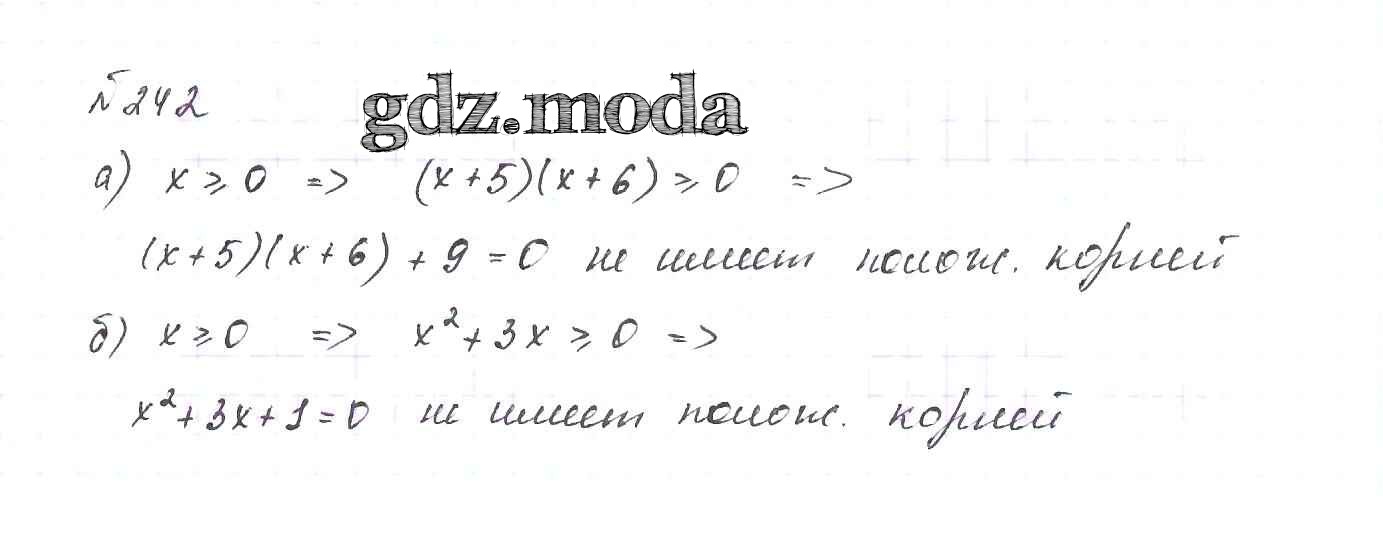 №242
gdz.moda
а) x ⩾ 0 => (x+5)(x+6) ⩾ 0 =>
(x+5)(x+6) + 9 = 0 не имеет полож. корней
б) x ⩾ 0 => x² + 3x ⩾ 0 =>
x² + 3x + 1 = 0 не имеет полож. корней